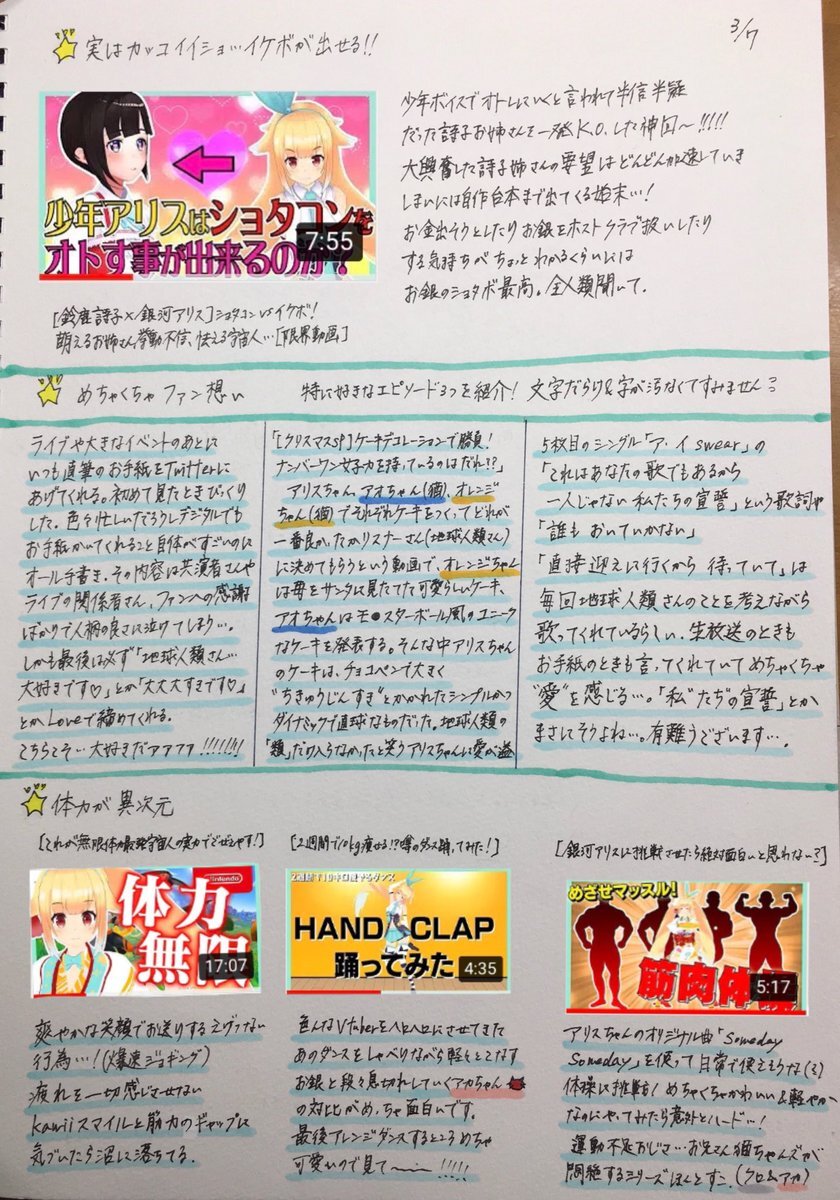 3/7
実はカッコイイショ…イケボが出せる!!
少年アリスはショタコンを
オトす事が出来るのか?
7:55
[鈴鹿詩子×銀河アリス]ショタコンvsイケボ!
萌えるお姉さん挙動不信、怯える宇宙人…[限界動画]
少年ボイスでオトしにいくと言われて半信半疑
だった詩子お姉さんを一発K.O.した神回〜!!!!!
大興奮した詩子姉さんの要望はどんどん加速していき
しまいには自作台本まで出てくる始末…!
お金出そうとしたりお銀をホストクラブ扱いしたり
する気持ちがちょっとわかるくらいには
お銀のショタボ最高。全人類聞いて。
めちゃくちゃファン想い
特に好きなエピソード3つを紹介! 文字だらけ&字が汚なくてすみません
ライブや大きなイベントのあとに
いつも直筆のお手紙をTwitterに
あげてくれる。初めて見たときびっくり
した。色々忙しいだろうしデジタルでも
お手紙かいてくれること自体がすごいのに
オール手書き。その内容は共演者さんや
ライブの関係者さん、ファンへの感謝
ばかりで人柄の良さに泣けてしまう…。
しかも最後は必ず「地球人類さん…
大好きです♡」とか「大大大すきです♡」
とかLoveで締めてくれる。
こちらこそ…大好きだァァァァ!!!!!!!
「[クリスマスSP]ケーキデコレーションで勝負!
ナンバーワン女子力を持っているのはだれ!?」
アリスちゃん、アオちゃん(猫)、オレンジ
ちゃん(猫)でそれぞれケーキをつくってどれが
一番良かったかリスナーさん(地球人類さん)
に決めてもらうという動画で、オレンジちゃん
は苺をサンタに見たてた可愛らしいケーキ、
アオちゃんはモ●スターボール風のユニーク
なケーキを発表する。そんな中アリスちゃん
のケーキは、チョコペンで大きく
"ちきゅうじんすき"とかかれたシンプルかつ
ダイナミックで直球なものだった。地球人類の
「類」だけ入らなかったと笑うアリスちゃんに愛が溢
5枚目のシングル「ア・イ swear」の
「これはあなたの歌でもあるから
一人じゃない 私たちの宣誓」という歌詞や
「誰も おいていかない」
「直接迎えに行くから 待っていて」は
毎回地球人類さんのことを考えながら
歌ってくれているらしい。生放送のときも
お手紙のときも言ってくれていてめちゃくちゃ
"愛"を感じる…。「私"たち"の宣誓」とか
まさにそうよね…。有難うございます…。
体力が異次元
[これが無限体力最強宇宙人の実力でごぜぇやす!]
Nintendo
体力
無限
17:07
爽やかな笑顔でお送りするえげつない
行為…!(爆速ジョギング)
疲れを一切感じさせない
kawiiスマイルと筋力のギャップに
気づいたら沼に落ちてる。
[2週間で10kg痩せる!?噂のダンス踊ってみた!]
2週間で10キロ痩せるダンス
HAND CLAP
踊ってみた
4:35
色んなVtuberをヘロヘロにさせてきた
あのダンスをしゃべりながら軽々とこなす
お銀と段々息切れしていくアカちゃん
の対比がめっちゃ面白いです。
最後アレンジダンスするところめちゃ
可愛いので見て〜!!!!!
[銀河アリスに挑戦させたら絶対面白いと思わない?]
めざせマッスル!
筋肉体操
5:17
アリスちゃんのオリジナル曲「Someday
Someday」を使って日常で使えそうな(?)
体操に挑戦! めちゃくちゃかわいい&軽やか
なのにやってみたら意外とハード…!
運動不足おじさ…お兄さん猫ちゃんズが
悶絶するシリーズほんとすこ。(クロ&アカ)